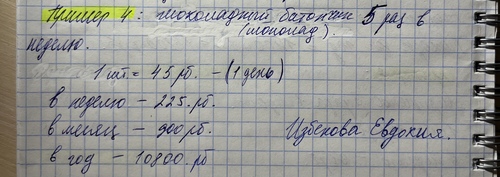 Пример 4: шоколадный батончик 5 раз в
(шоколад).
неделю.
1 шт. = 45 рб. - (1 день)
в неделю - 225 рб.
в месяц - 900 рб.
Избекова Евдокия.
в год - 10800. рб